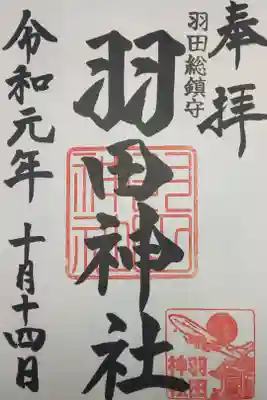 奉拝
羽田総鎮守
羽田神社
令和元年 十月十四日
羽田神社
羽田
神社